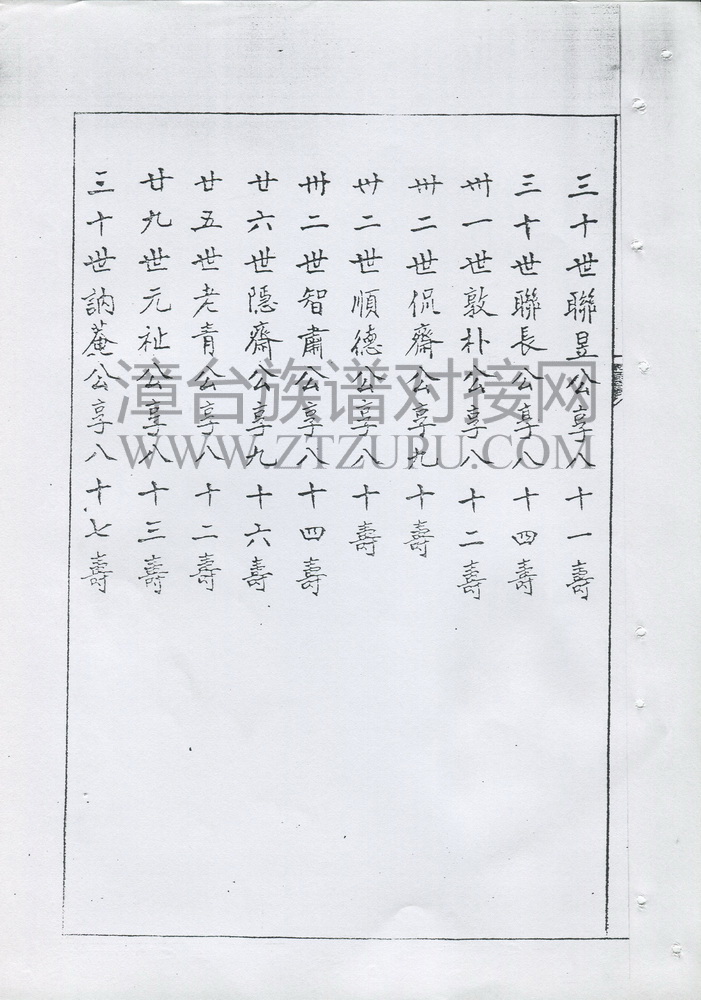 三十世聯昱公享八十一壽
三十世聯長公享八十四壽
卅一世敦朴公享八十二壽
卅二世侃齋公享九十壽
卅二世順德公享八十壽
卅二世智肅公享八十四壽
廿六世隱齋公享九十六壽
廿五世老青公享八十二壽
廿九世元祉公享八十三壽
三十世訥菴公享八十七壽
漳台族谱对接网
WWW.ZTZUPU.COM